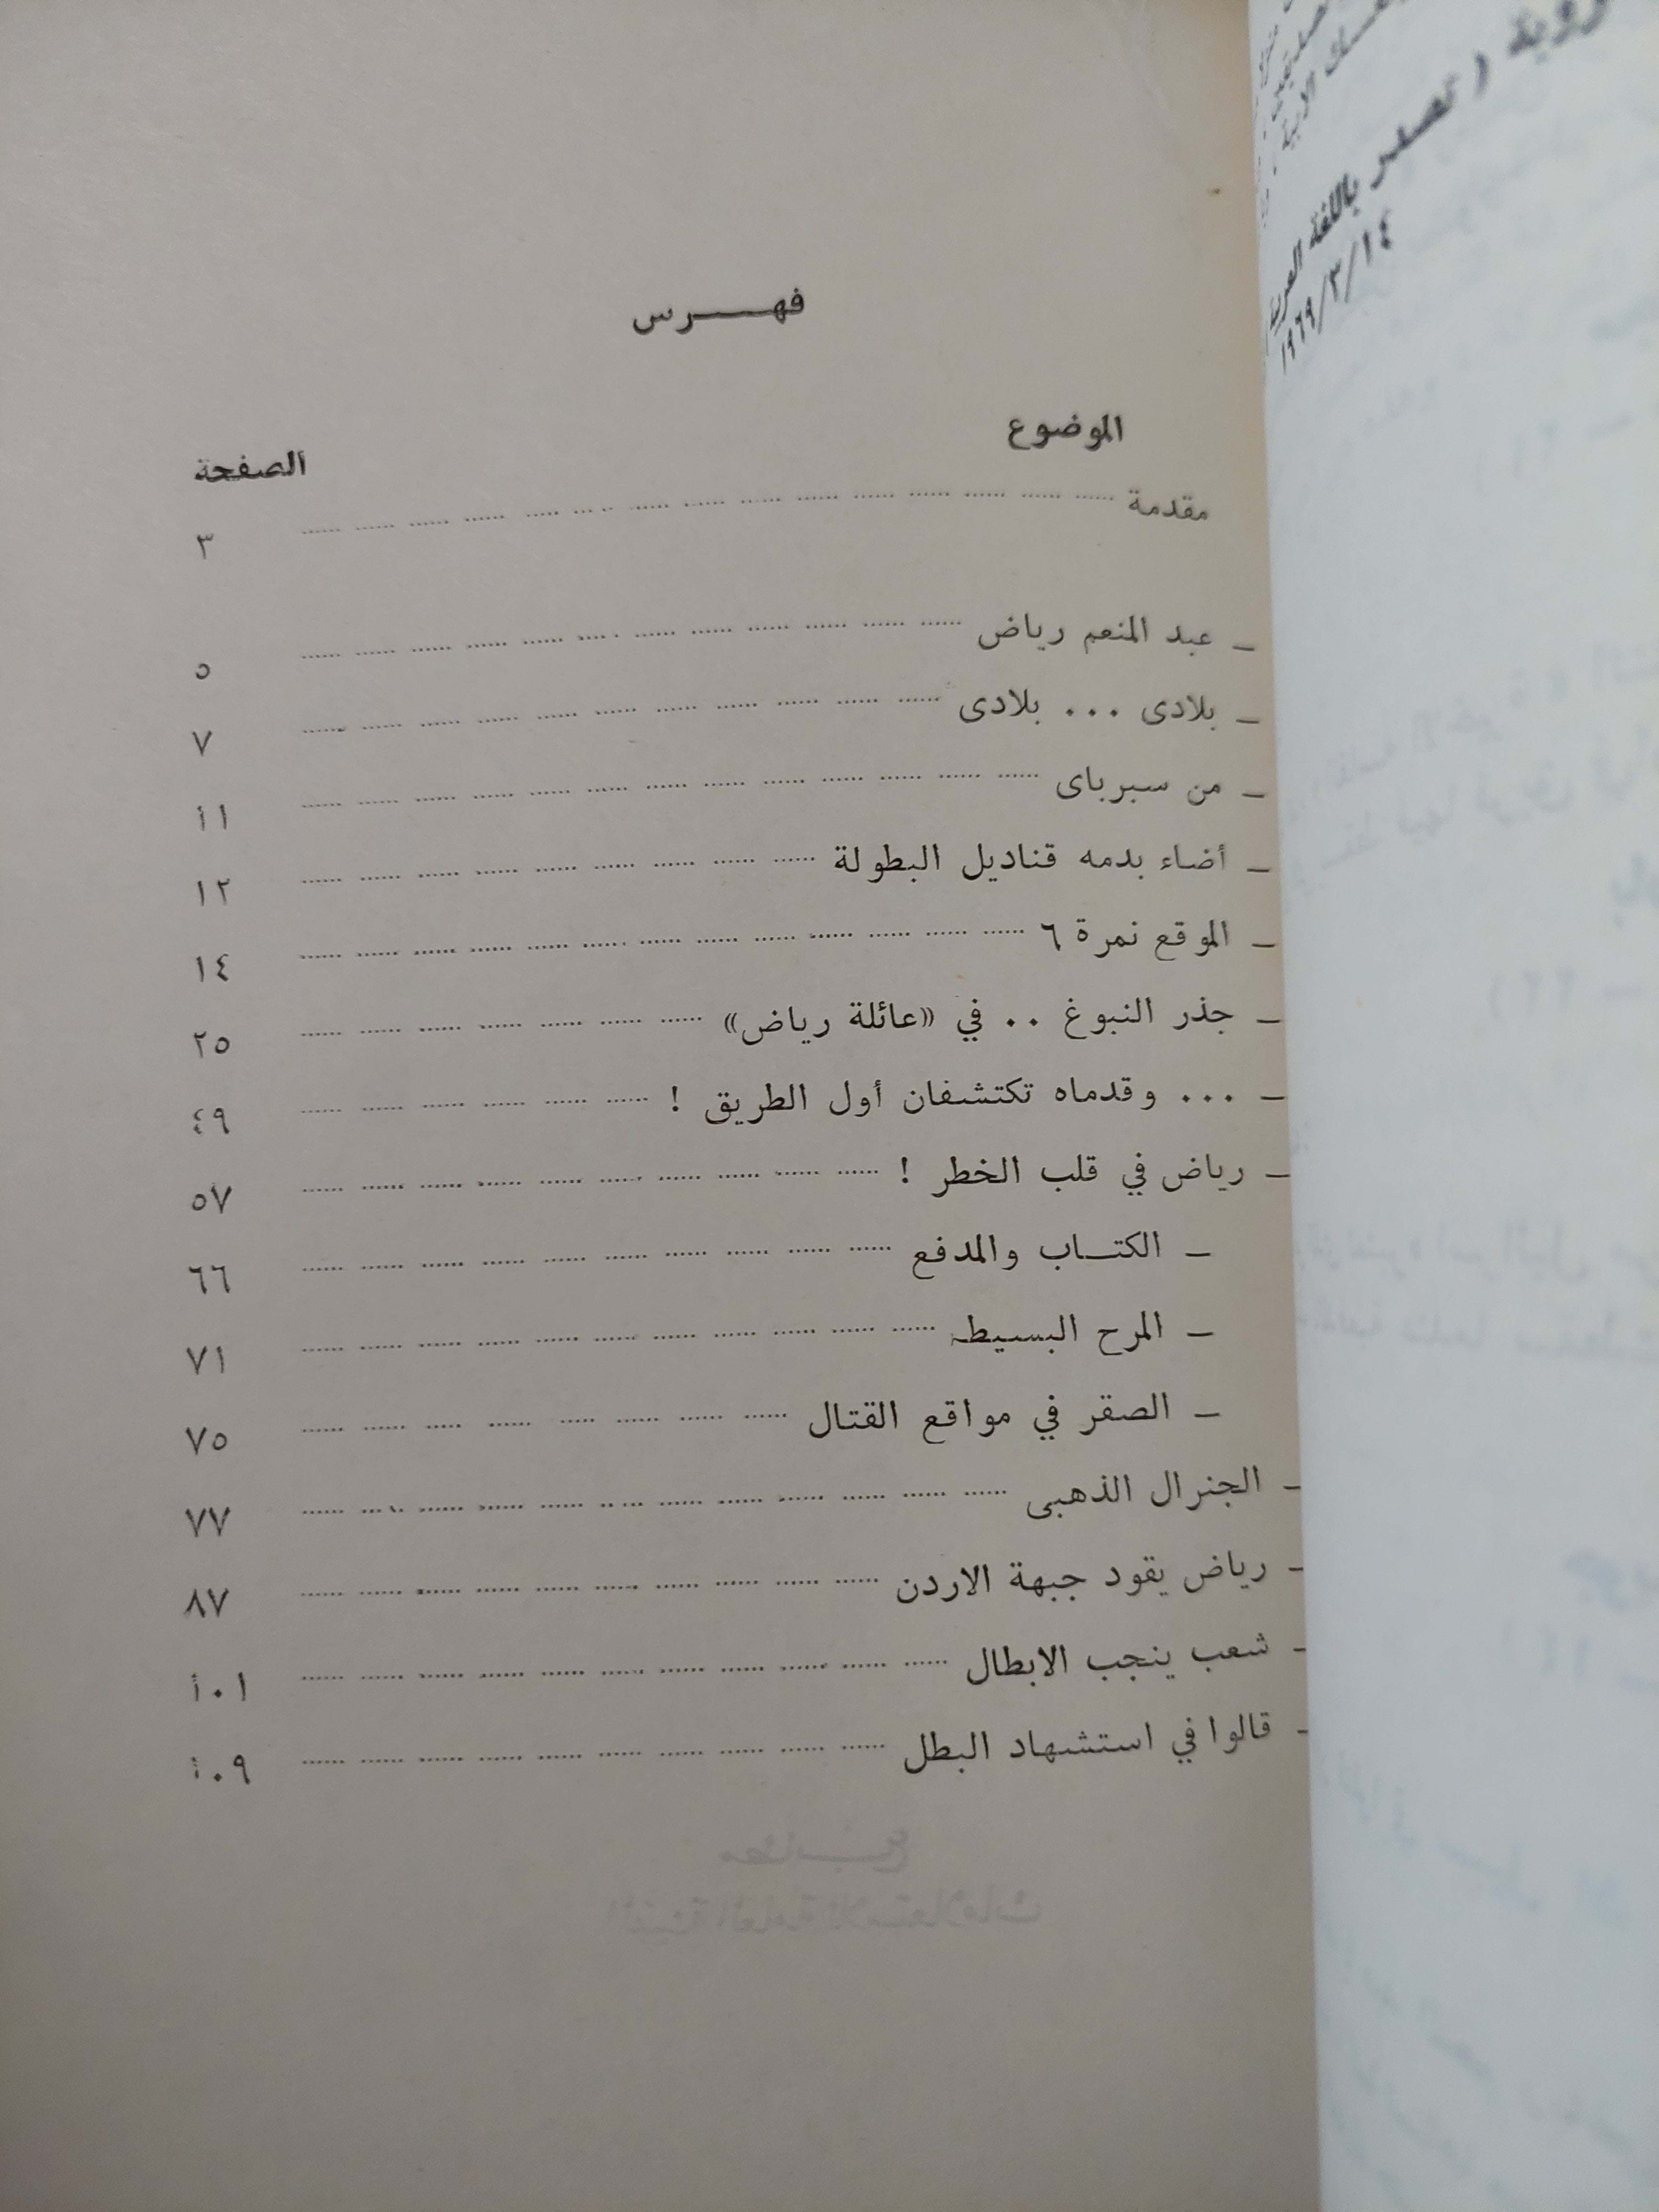 فهرس
الموضوع الصفحة
مقدمة ٣
ـ عبد المنعم رياض ٥
ـ بلادى ... بلادى ٧
ـ من سبرباى ١١
ـ أضاء بدمه قناديل البطولة ١٢
ـ الموقع نمرة ٦ ١٤
ـ جذر النبوغ .. في «عائلة رياض» ٢٥
ـ ... وقدماه تكتشفان أول الطريق ! ٤٩
ـ رياض في قلب الخطر ! ٥٧
ـ الكتاب والمدفع ٦٦
ـ المرح البسيط ٧١
ـ الصقر في مواقع القتال ٧٥
ـ الجنرال الذهبى ٧٧
ـ رياض يقود جبهة الاردن ٨٧
ـ شعب ينجب الابطال ١٠١
ـ قالوا في استشهاد البطل ١٠٩
مطابع
الهيئة العامة للاستعلامات
( تصدر باللغة
١٩٦٩/٣/١٤